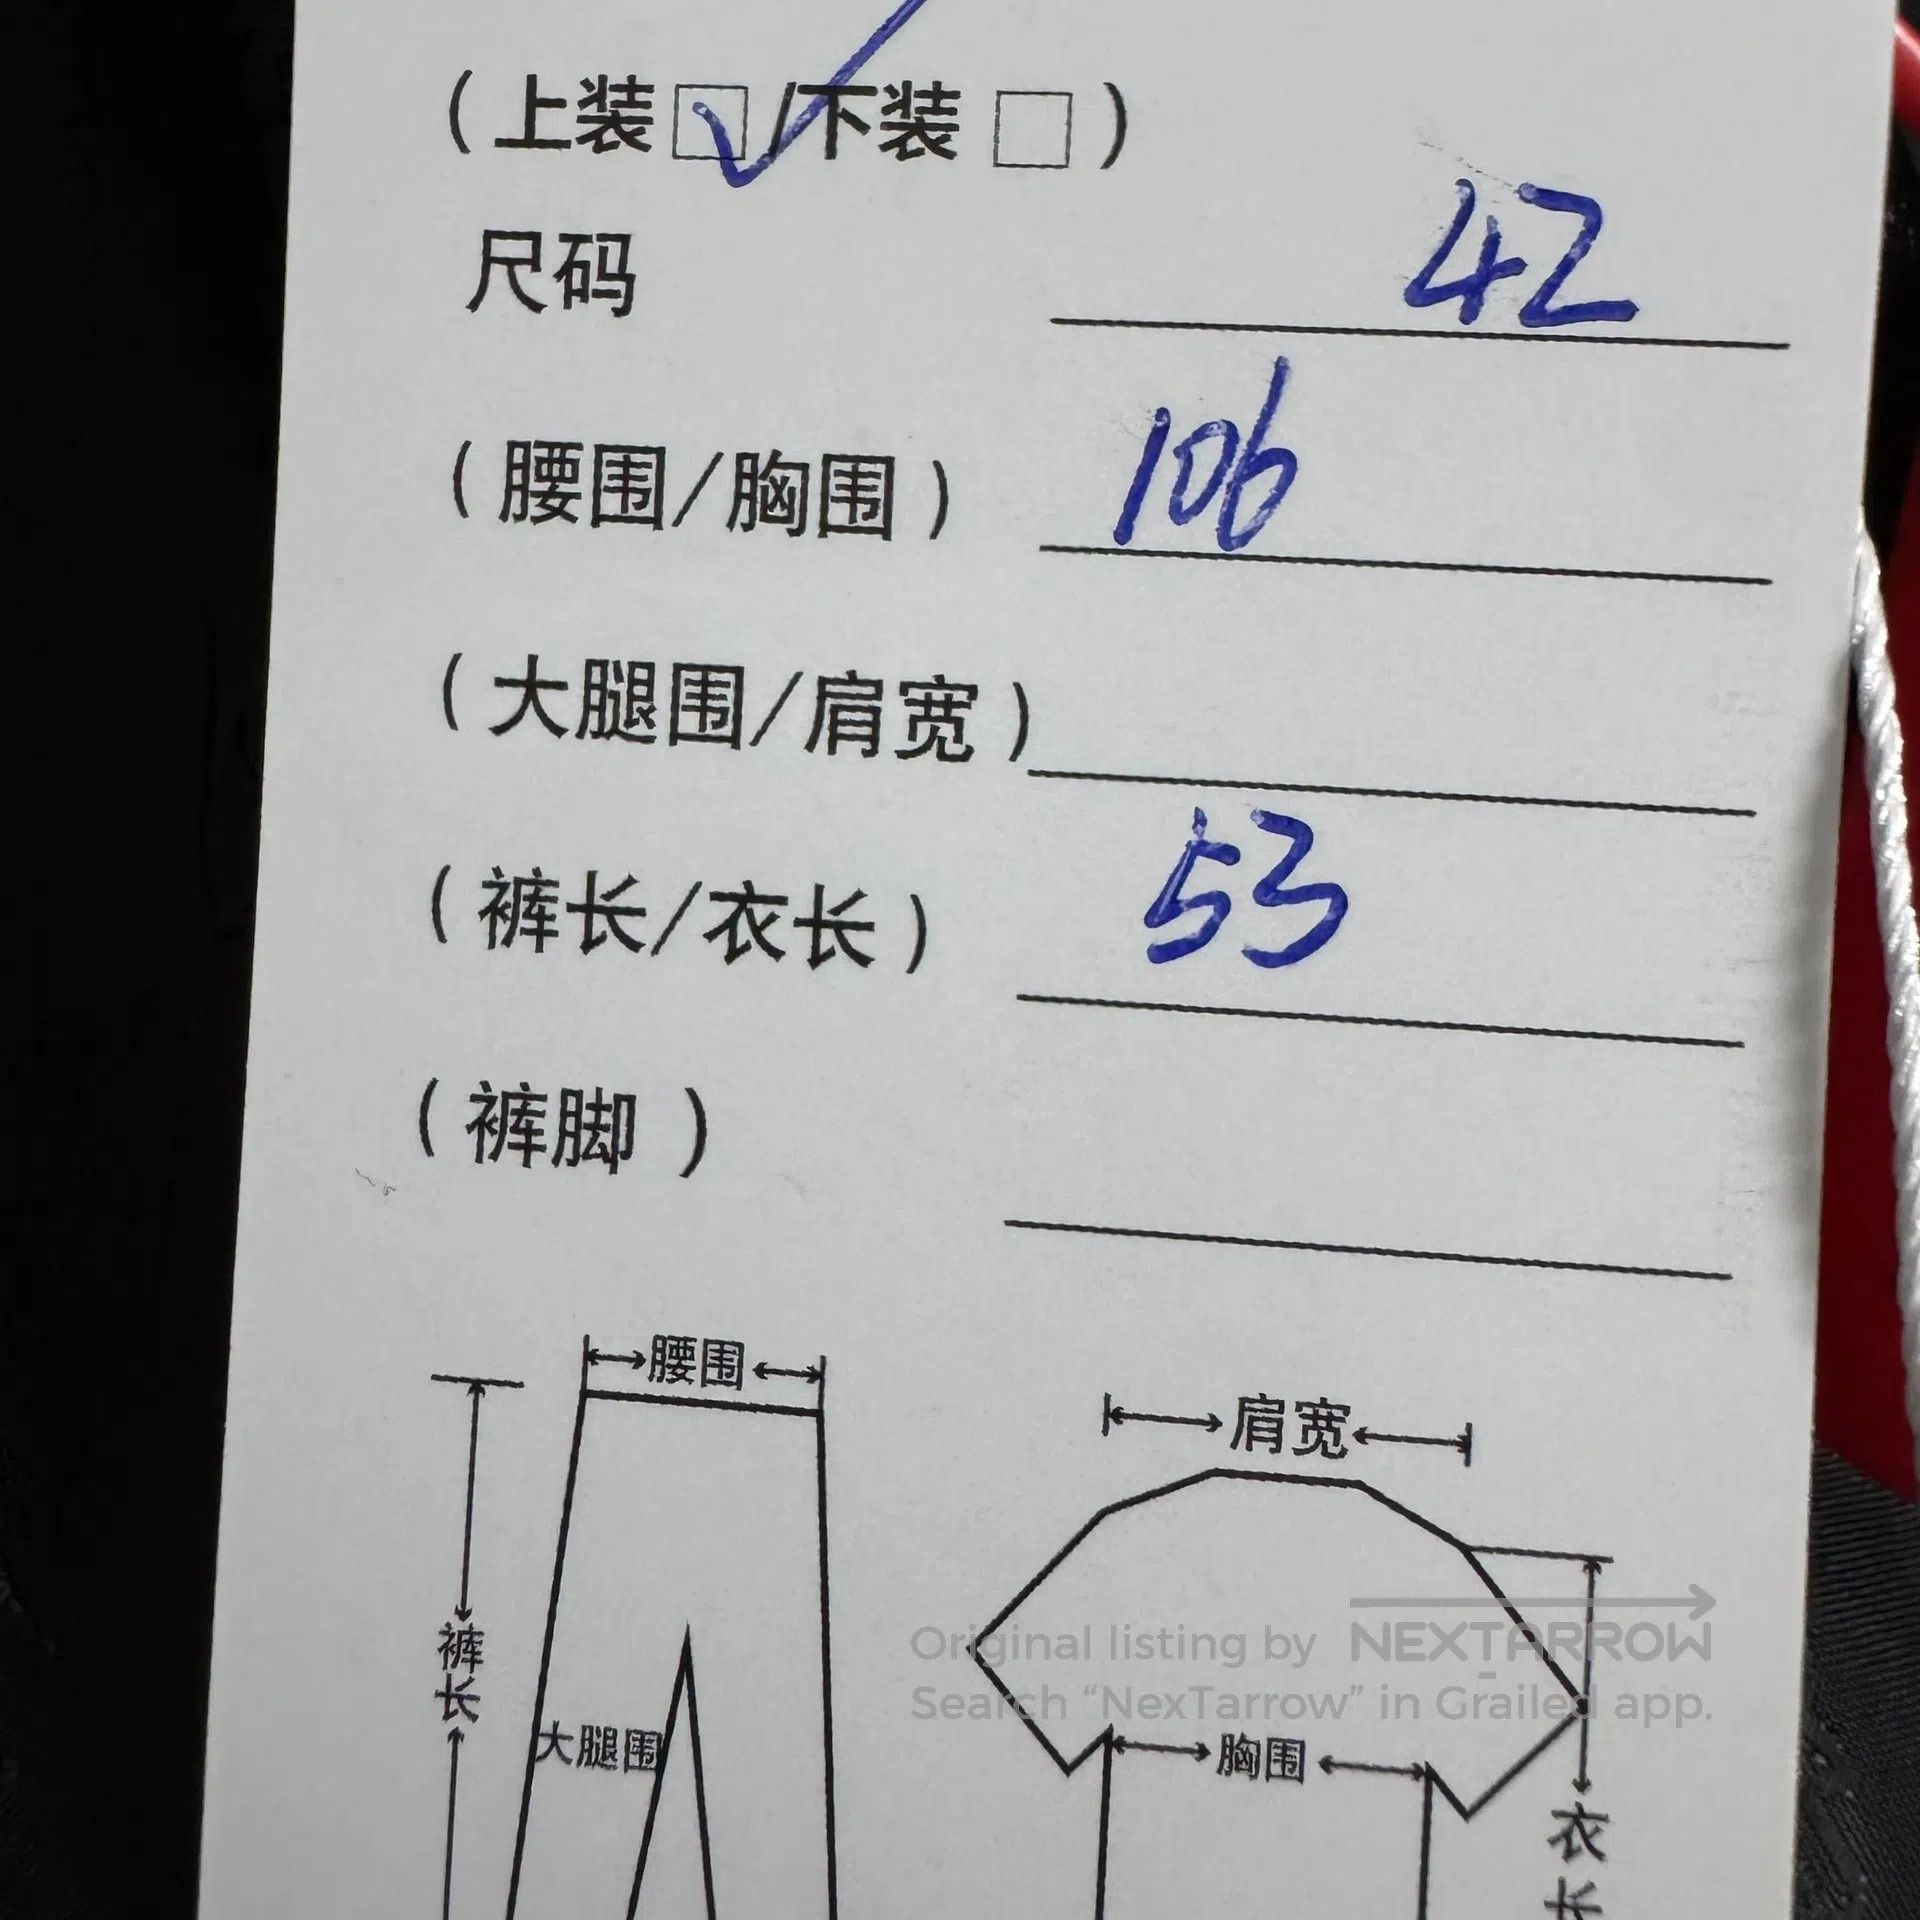 （上装□/下装□）
尺码 42
（腰围/胸围） 106
（大腿围/肩宽）
（裤长/衣长） 53
（裤脚）
腰围
肩宽
裤长
大腿围
胸围
衣长
Original listing by NEXTARROW
Search “NexTarrow” in Grailed app.